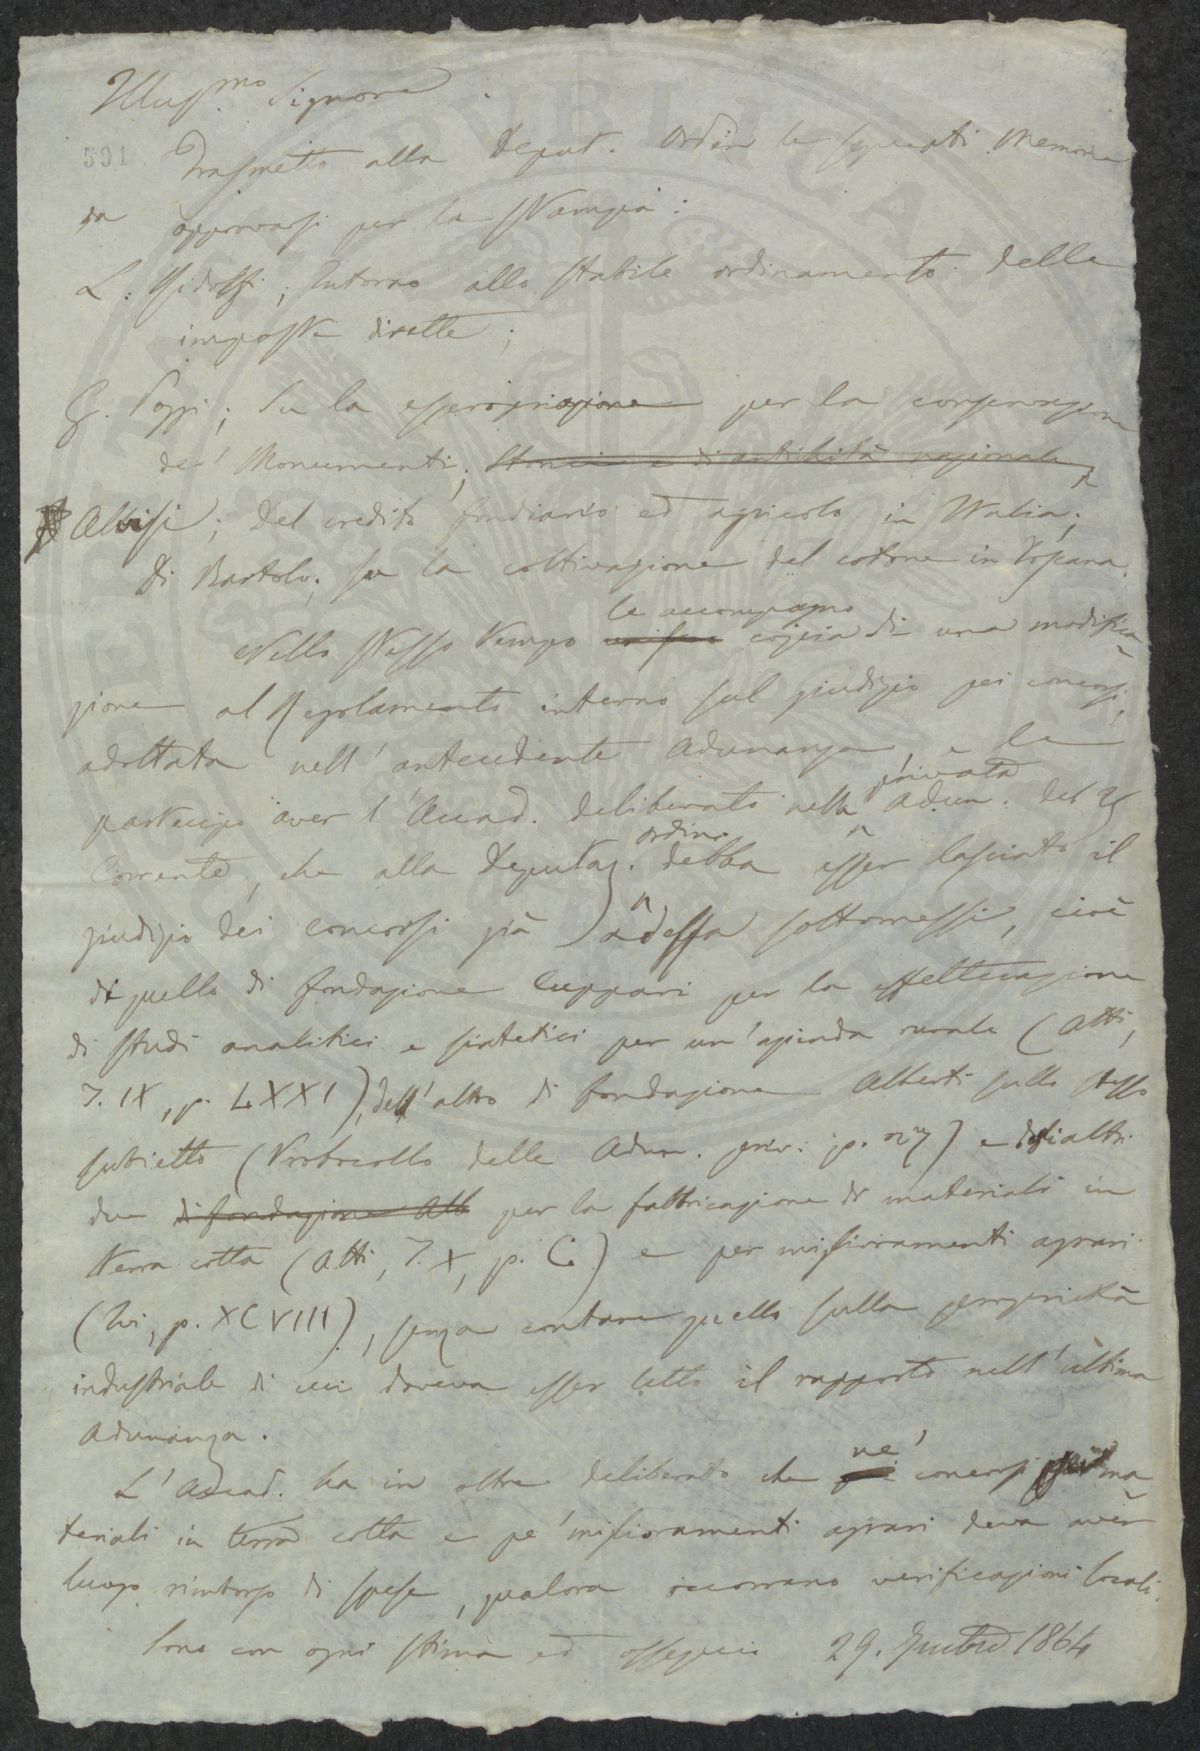 Illus.mo Signore
591
Trasmetto alla Deput. Ordin le seguenti Memorie
da approvarsi per la stampa:
L. Ridolfi; Intorno allo stabile ordinamento delle
imposte dirette;
G. Poggi; Su la espropriazione per la conservazione
de' Monumenti; storici e di antichità nazionale,
Alvisi; Del credito fondiario ed agricolo in Italia;
Di Bartolo; su la coltivazione del cotone in Toscana.
le accompagno
Nello stesso tempo copia di una modifica
zione al Regolamento interno sul giudizio pei concorsi,
adottata nell' antecedente Adunanza, e le
privata
partecipo aver l'Accad. deliberato nella Adun. del 25
ordin.
Corrente, che alla Deputaz. debba esser lasciato il
giudizio dei concorsi già adessa sottomessi, cioè
di quello di fondazione Cuppari per la effettuazione
di studi analitici e sintetici per un'azienda rurale (Atti,
T. IX, p. LXXI), dell'altro di fondazione Alberti sullo stesso
subietto (Protocollo delle Adun. priv. p. 27) e degli altri
due di fondazione Alb per la fabbricazione di materiali in
terra cotta (Atti, T. X, p. C.) e per miglioramenti agrari
(Ivi, p. XCVIII), senza contare quello sulla proprietà
industriale di cui doveva esser letto il rapporto nell'ultima
Adunanza.
ne'
L'Accad. ha in oltre deliberato che concorsi per ma
teriali in terra cotta e pe' miglioramenti agrari deva aver
luogo rimborso di spese, qualora occorrano verificazioni locali.
Sono con ogni stima ed ossequio 29. 1864